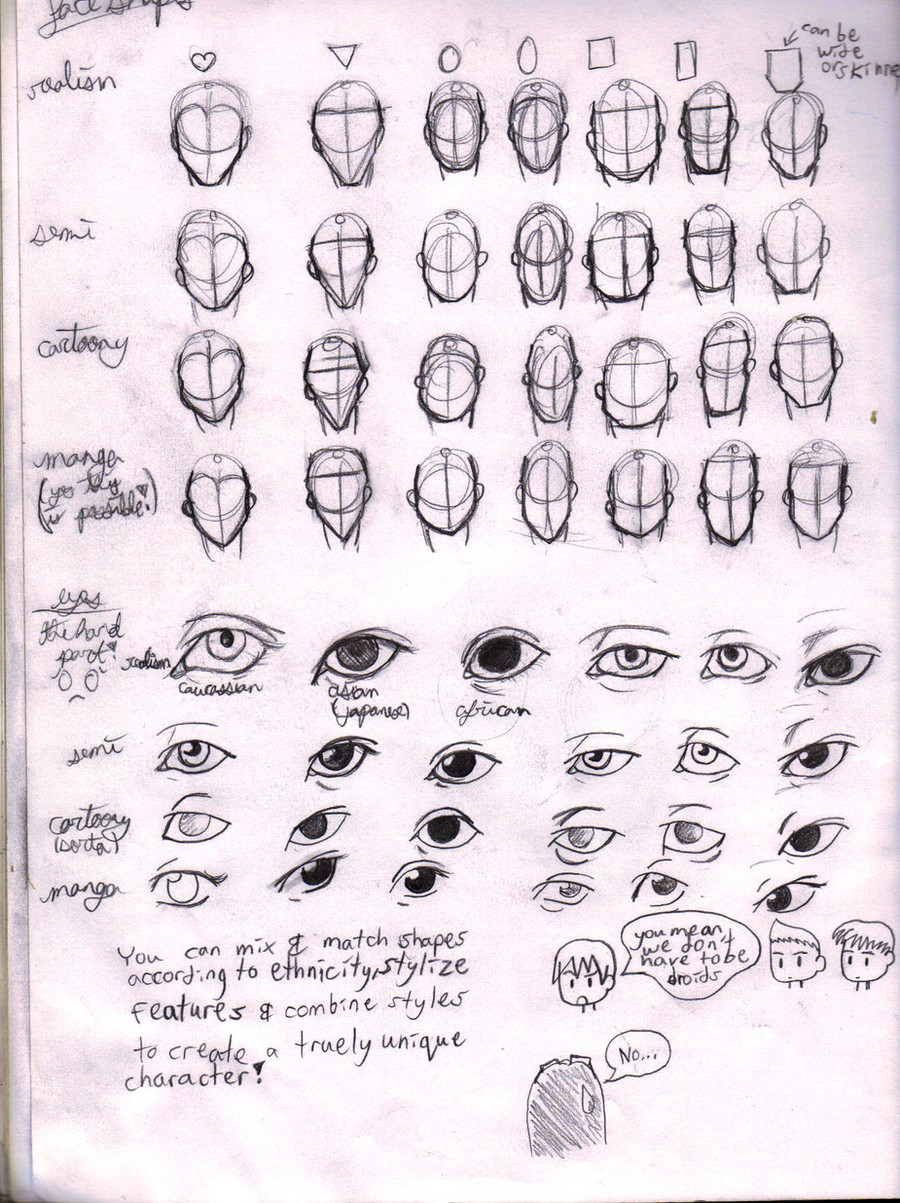 face shapes
can be
wide
or skinny
realism
semi
cartoony
manga
is possible!
eyes
the hard
part!
realism
caucassian
asian
(japanese)
african
semi
cartoony
(sorta)
manga
You can mix & match shapes
according to ethnicity, stylize
features & combine styles
to create a truely unique
character!
you mean
we don't
have to be
droids
No...